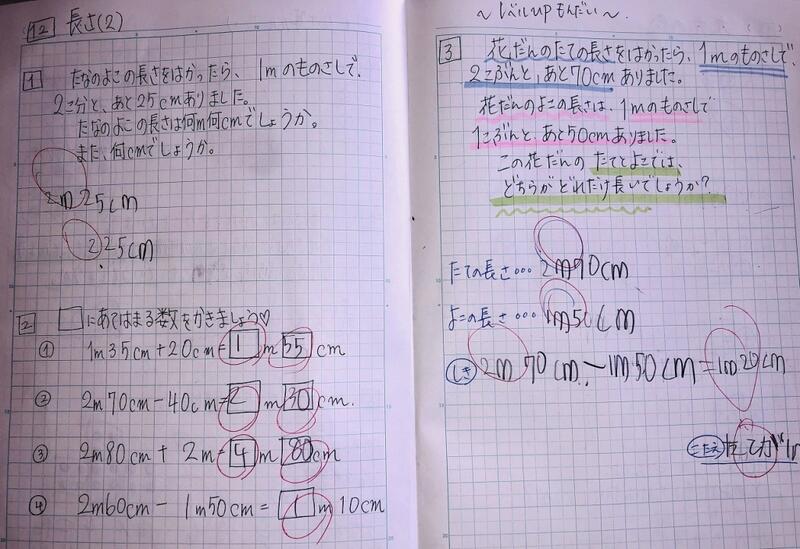 12 長さ(2)
1 たなのよこの長さをはかったら、1mのものさしで、
2こ分と、あと25cmありました。
たなのよこの長さは何m何cmでしょうか。
また、何cmでしょうか。
2m25cm
225cm
2 □にあてはまる数をかきましょう♡
① 1m35cm+20cm=1m55cm
② 2m70cm-40cm=2m30cm.
③ 2m80cm+2m=4m80cm
④ 2m60cm-1m50cm=1m10cm
～レベルupもんだい～.
3 花だんのたての長さをはかったら、1mのものさしで
2こぶんと、あと70cmありました。
花だんのよこの長さは、1mのものさしで
1こぶんと、あと50cmありました。
この花だんの たてとよこでは、
どちらが どれだけ長いでしょうか?
たての長さ…2m70cm
よこの長さ…1m50cm
しき 2m70cm-1m50cm=1m20cm
こたえ たてが1m